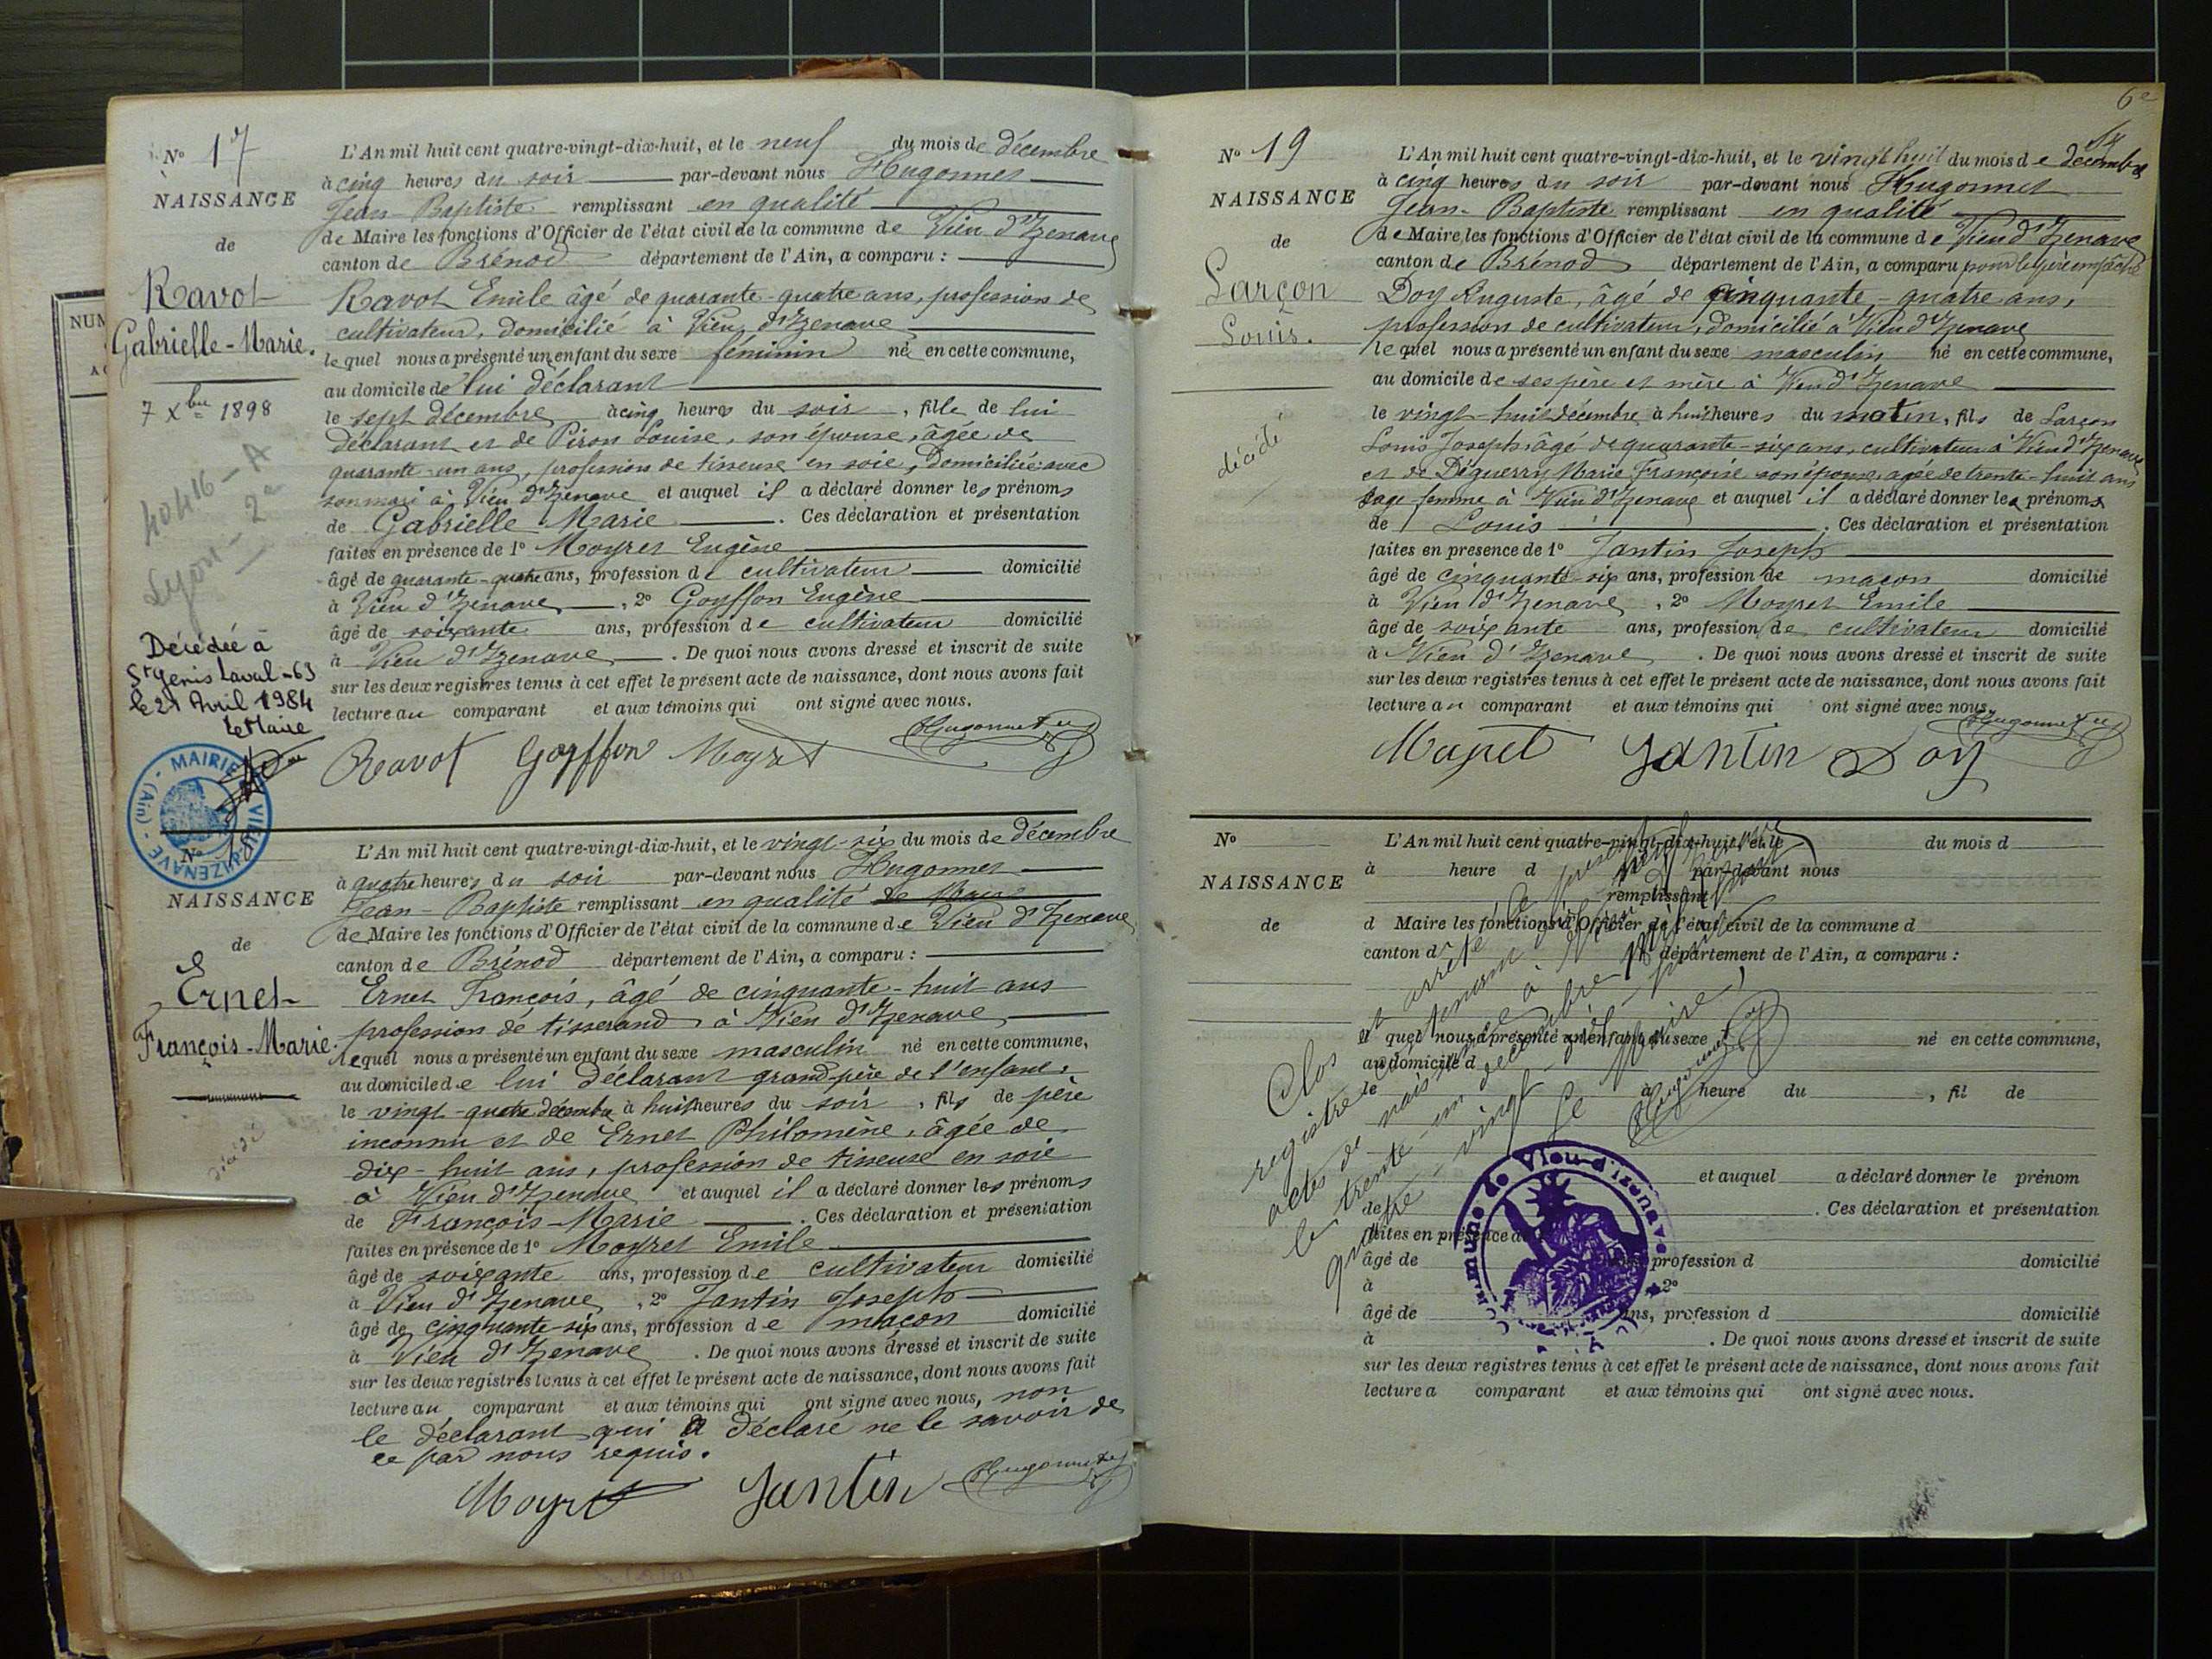 N° 17
NAISSANCE
de
Ravot
Gabrielle-Marie.
7 Xbre 1898
40416-A
Lyon-2e
Décédée à
St Genis Laval -69
le 21 Avril 1984
Le Maire
MAIRIE VIEU D'IZENAVE
(Ain)
L'An mil huit cent quatre-vingt-dix-huit, et le neuf du mois de décembre
à cinq heures du soir par-devant nous Hugonnet
Jean-Baptiste remplissant en qualité
de Maire les fonctions d'Officier de l'état civil de la commune de Vieu d'Izenave
canton de Brénod département de l'Ain, a comparu :
Ravot Emile âgé de quarante-quatre ans, profession de
cultivateur, domicilié à Vieu d'Izenave
lequel nous a présenté un enfant du sexe féminin né en cette commune,
au domicile de lui déclarant
le sept décembre à cinq heures du soir, fille de lui
déclarant et de Piron Louise, son épouse, âgée de
quarante-un ans, profession de tisseuse en soie, domiciliée avec
son mari à Vieu d'Izenave et auquel il a déclaré donner les prénoms
de Gabrielle Marie . Ces déclaration et présentation
faites en présence de 1° Moyret Eugène
âgé de quarante-quatre ans, profession de cultivateur domicilié
à Vieu d'Izenave, 2° Goyffon Eugène
âgé de soixante ans, profession de cultivateur domicilié
à Vieu d'Izenave . De quoi nous avons dressé et inscrit de suite
sur les deux registres tenus à cet effet le présent acte de naissance, dont nous avons fait
lecture au comparant et aux témoins qui ont signé avec nous.
Ravot Goyffon Moyret Hugonnet
N° 18
NAISSANCE
de
Ernet
François-Marie.
décédé
L'An mil huit cent quatre-vingt-dix-huit, et le vingt-six du mois de décembre
à quatre heures du soir par-devant nous Hugonnet
Jean-Baptiste remplissant en qualité de Maire
de Maire les fonctions d'Officier de l'état civil de la commune de Vieu d'Izenave
canton de Brénod département de l'Ain, a comparu :
Ernet François, âgé de cinquante-huit ans
profession de tisserand à Vieu d'Izenave
lequel nous a présenté un enfant du sexe masculin né en cette commune,
au domicile de lui déclarant grand-père de l'enfant,
le vingt-quatre décembre à huit heures du soir, fils de père
inconnu et de Ernet Philomène, âgée de
dix-huit ans, profession de tisseuse en soie
à Vieu d'Izenave et auquel il a déclaré donner les prénoms
de François-Marie . Ces déclaration et présentation
faites en présence de 1° Moyret Emile
âgé de soixante ans, profession de cultivateur domicilié
à Vieu d'Izenave, 2° Jantin Joseph
âgé de cinquante-six ans, profession de maçon domicilié
à Vieu d'Izenave . De quoi nous avons dressé et inscrit de suite
sur les deux registres tenus à cet effet le présent acte de naissance, dont nous avons fait
lecture au comparant et aux témoins qui ont signé avec nous, non
le déclarant qui a déclaré ne le savoir de
ce par nous requis.
Moyret Jantin Hugonnet
6e
N° 19
NAISSANCE
de
Larçon
Louis.
décédé
L'An mil huit cent quatre-vingt-dix-huit, et le vingt huit du mois de décembre
à cinq heures du soir par-devant nous Hugonnet
Jean-Baptiste remplissant en qualité
de Maire les fonctions d'Officier de l'état civil de la commune de Vieu d'Izenave
canton de Brénod département de l'Ain, a comparu pour le père empêché
Doy Auguste, âgé de cinquante-quatre ans,
profession de cultivateur, domicilié à Vieu d'Izenave
lequel nous a présenté un enfant du sexe masculin né en cette commune,
au domicile de ses père et mère à Vieu d'Izenave
le vingt-huit décembre à huit heures du matin, fils de Larçon
Louis Joseph, âgé de quarante-six ans, cultivateur à Vieu d'Izenave
et de Déguerry Marie Françoise son épouse, agée de trente-huit ans
sage-femme à Vieu d'Izenave et auquel il a déclaré donner les prénoms
de Louis . Ces déclaration et présentation
faites en présence de 1° Jantin Joseph
âgé de cinquante-six ans, profession de maçon domicilié
à Vieu d'Izenave, 2° Moyret Emile
âgé de soixante ans, profession de cultivateur domicilié
à Vieu d'Izenave . De quoi nous avons dressé et inscrit de suite
sur les deux registres tenus à cet effet le présent acte de naissance, dont nous avons fait
lecture au comparant et aux témoins qui ont signé avec nous.
Hugonnet
Moyret Jantin Doy
N°
NAISSANCE
de
L'An mil huit cent quatre-vingt-dix-huit, et le du mois d
à heure d par-devant nous
remplissant
d Maire les fonctions d'Officier de l'état civil de la commune d
canton d département de l'Ain, a comparu :
quel nous a présenté un enfant du sexe né en cette commune,
au domicile d
le à heure du , fil de
et auquel a déclaré donner le prénom
de . Ces déclaration et présentation
faites en présence de
âgé de ans, profession d domicilié
à 2°
âgé de ans, profession d domicilié
à . De quoi nous avons dressé et inscrit de suite
sur les deux registres tenus à cet effet le présent acte de naissance, dont nous avons fait
lecture a comparant et aux témoins qui ont signé avec nous.
Clos et arrêté le présent
registre
actes de naissance à
le trente-un décembre mil huit cent
quatre-vingt-dix-huit
Le Maire,
Hugonnet
Commune de Vieu-d'izenave